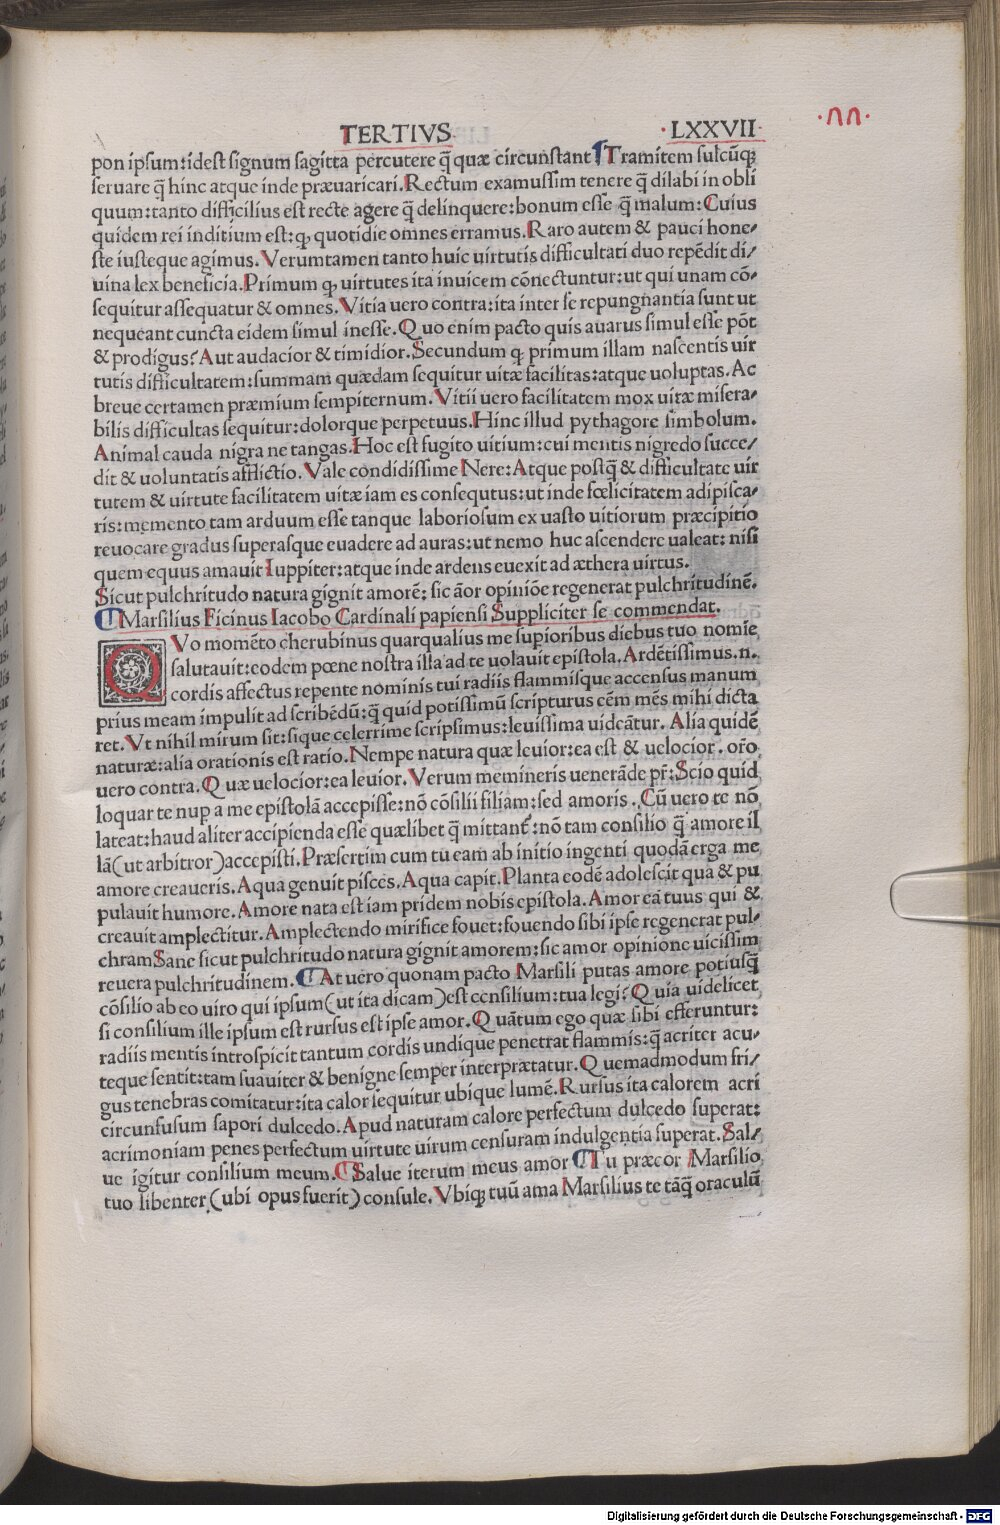 TERTIVS
·LXXVII·
·77·
pon ipsum:idest signum sagitta percutere q̃ quæ circunstant Tramitem sulcūq;
seruare q̃ hinc atque inde præuaricari.Rectum examussim tenere q̃ dilabi in obli
quum:tanto difficilius est recte agere q̃ delinquere:bonum esse q̃ malum:Cuius
quidem rei inditium est:ꝙ quotidie omnes erramus.Raro autem & pauci hone-
ste iusteque agimus.Verumtamen tanto huic uirtutis difficultati duo repēdit di/
uina lex beneficia.Primum ꝙ uirtutes ita inuicem cōnectuntur:ut qui unam cō-
sequitur assequatur & omnes.Vitia uero contra:ita inter se repungnantia sunt ut
nequeant cuncta eidem simul inesse.Quo enim pacto quis auarus simul esse pōt
& prodigus?Aut audacior & timidior.Secundum ꝙ primum illam nascentis uir
tutis difficultatem:summam quædam sequitur uitæ facilitas:atque uoluptas.Ac
breue certamen præmium sempiternum.Vitii uero facilitatem mox uitæ misera-
bilis difficultas sequitur:dolorque perpetuus.Hinc illud pythagore simbolum.
Animal cauda nigra ne tangas.Hoc est fugito uitium:cui mentis nigredo succe/
dit & uoluntatis afflictio.Vale condidissime Nere:Atque postq̃ & difficultate uir
tutem & uirtute facilitatem uitæ iam es consequtus:ut inde fœlicitatem adipisca-
ris:memento tam arduum esse tanque laboriosum ex uasto uitiorum præcipitio
reuocare gradus superasque euadere ad auras:ut nemo huc ascendere ualeat: nisi
quem equus amauit Iuppiter:atque inde ardens euexit ad æthera uirtus.
Sicut pulchritudo natura gignit amorē: sic āor opiniōe regenerat pulchritudinē.
Marsilius Ficinus Iacobo Cardinali papiensi Suppliciter se commendat.
QVo momēto cherubinus quarqualius me supioribus diebus tuo nomīe
salutauit:eodem pœne nostra illa ad te uolauit epistola.Ardētissimus.n.
cordis affectus repente nominis tui radiis flammisque accensus manum
prius meam impulit ad scribēdū:q̃ quid potissimū scripturus cēm mēs mihi dicta
ret.Vt nihil mirum sit:sique celerrime scripsimus:leuissima uideātur. Alia quidē
naturæ:alia orationis est ratio.Nempe natura quæ leuior:ea est & uelocior. or̄o
uero contra.Quæ uelocior:ea leuior.Verum memineris uenerāde pr̄:Scio quid
loquar te nup a me epistolā accepisse:nō cōsilii filiam:sed amoris. Cū uero te nō
lateat:haud aliter accipienda esse quælibet q̃ mittant̄:nō tam consilio q̃ amore il
lā(ut arbitror)accepisti.Præsertim cum tu eam ab initio ingenti quodā erga me
amore creaueris.Aqua genuit pisces.Aqua capit.Planta eodē adolescit qua & pu
pulauit humore.Amore nata est iam pridem nobis epistola.Amor eā tuus qui &
creauit amplectitur.Amplectendo mirifice fouet:fouendo sibi ipse regenerat pul-
chram Sane sicut pulchritudo natura gignit amorem:sic amor opinione uicissim
reuera pulchritudinem. At uero quonam pacto Marsili putas amore potiusq̃
cōsilio ab eo uiro qui ipsum(ut ita dicam)est consilium:tua legi?Quia uidelicet
si consilium ille ipsum est rursus est ipse amor.Quātum ego quæ sibi efferuntur:
radiis mentis introspicit tantum cordis undique penetrat flammis:q̃ acriter acu-
teque sentit:tam suauiter & benigne semper interprætatur.Quemadmodum fri/
gus tenebras comitatur:ita calor sequitur ubique lumē.Rursus ita calorem acri
circunfusum sapori dulcedo.Apud naturam calore perfectum dulcedo superat:
acrimoniam penes perfectum uirtute uirum censuram indulgentia superat.Sal/
ue igitur consilium meum.Salue iterum meus amor Tu præcor Marsilio
tuo libenter(ubi opus fuerit)consule.Vbiq; tuū ama Marsilius te tāq̃ oraculū
Digitalisierung gefördert durch die Deutsche Forschungsgemeinschaft - DFG